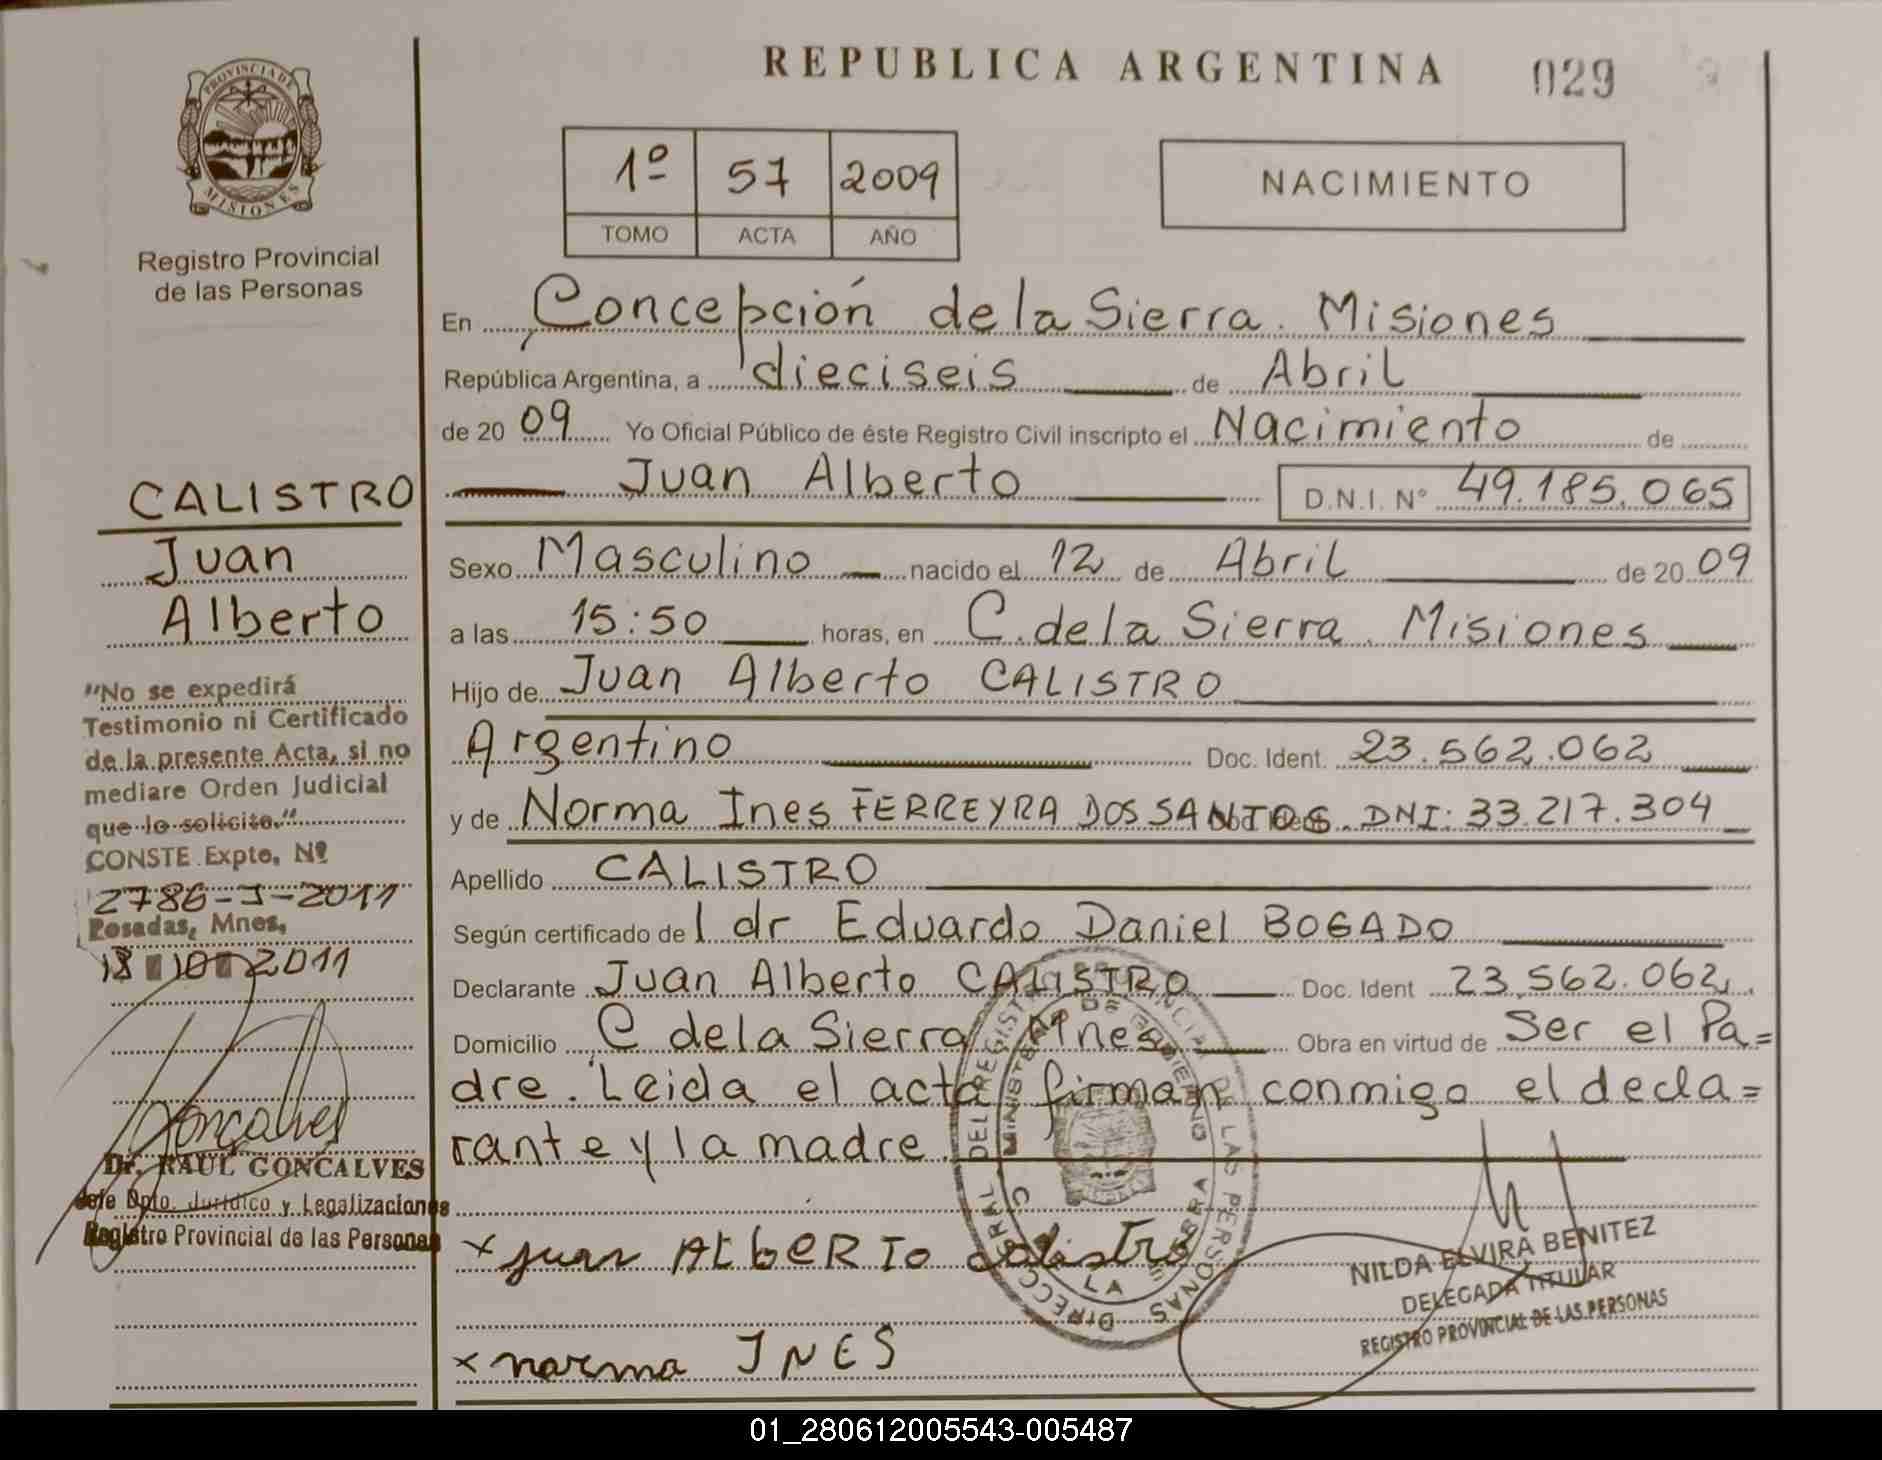 REPUBLICA ARGENTINA 029
PROVINCIA DE
MISIONES
Registro Provincial
de las Personas
1º 57 2009
TOMO ACTA AÑO
NACIMIENTO
En Concepción de la Sierra. Misiones
República Argentina, a dieciseis de Abril
de 20 09 Yo Oficial Público de éste Registro Civil inscripto el Nacimiento de
Juan Alberto D.N.I. Nº 49.185.065
Sexo Masculino nacido el 12 de Abril de 20 09
a las 15:50 horas, en C. de la Sierra. Misiones
Hijo de Juan Alberto CALISTRO
Argentino Doc. Ident. 23.562.062
y de Norma Ines FERREYRA DOS SANTOS. DNI: 33.217.304
Apellido CALISTRO
Según certificado de l dr Eduardo Daniel BOGADO
Declarante Juan Alberto CALISTRO Doc. Ident 23.562.062
Domicilio C de la Sierra Mnes Obra en virtud de Ser el Pa=
dre. Leida el acta firman conmigo el decla=
rante y la madre.
x juan ALbERTO calistro
x norma INES
CALISTRO
Juan
Alberto
"No se expedirá
Testimonio ni Certificado
de la presente Acta, si no
mediare Orden Judicial
que lo solicite."
CONSTE Expte, Nº
2786-J-2011
Posadas, Mnes,
18 10 2011
Goncalves
Dr. RAUL GONCALVES
Jefe Dpto. Jurídico y Legalizaciones
Registro Provincial de las Personas
DIRECC GRAL. DEL REGISTRO PROVINCIAL DE LAS PERSONAS
MINISTERIO DE GOBIERNO
C. DE LA SIERRA
NILDA ELVIRA BENITEZ
DELEGADA TITULAR
REGISTRO PROVINCIAL DE LAS PERSONAS
01_280612005543-005487